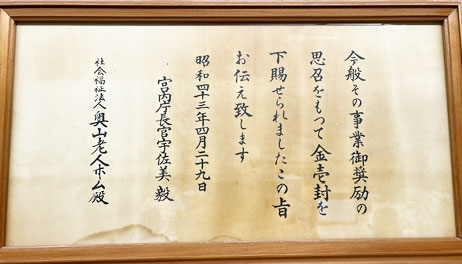 今般その事業御奨励の
思召をもつて金壱封を
下賜せられましたこの旨
お伝え致します
昭和四十三年四月二十九日
宮内庁長官宇佐美毅
社会福祉法人奥山老人ホーム殿